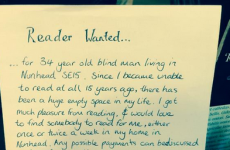 Reader Wanted...
... for 34 year old blind man living in
Nunhead SE15. Since I became unable
to read at all 15 years ago, there has
been a huge empty space in my life. I get
much pleasure from reading, & would love
to find somebody to read for me, either
once or twice a week in my home in
Nunhead. Any possible payments can be discussed